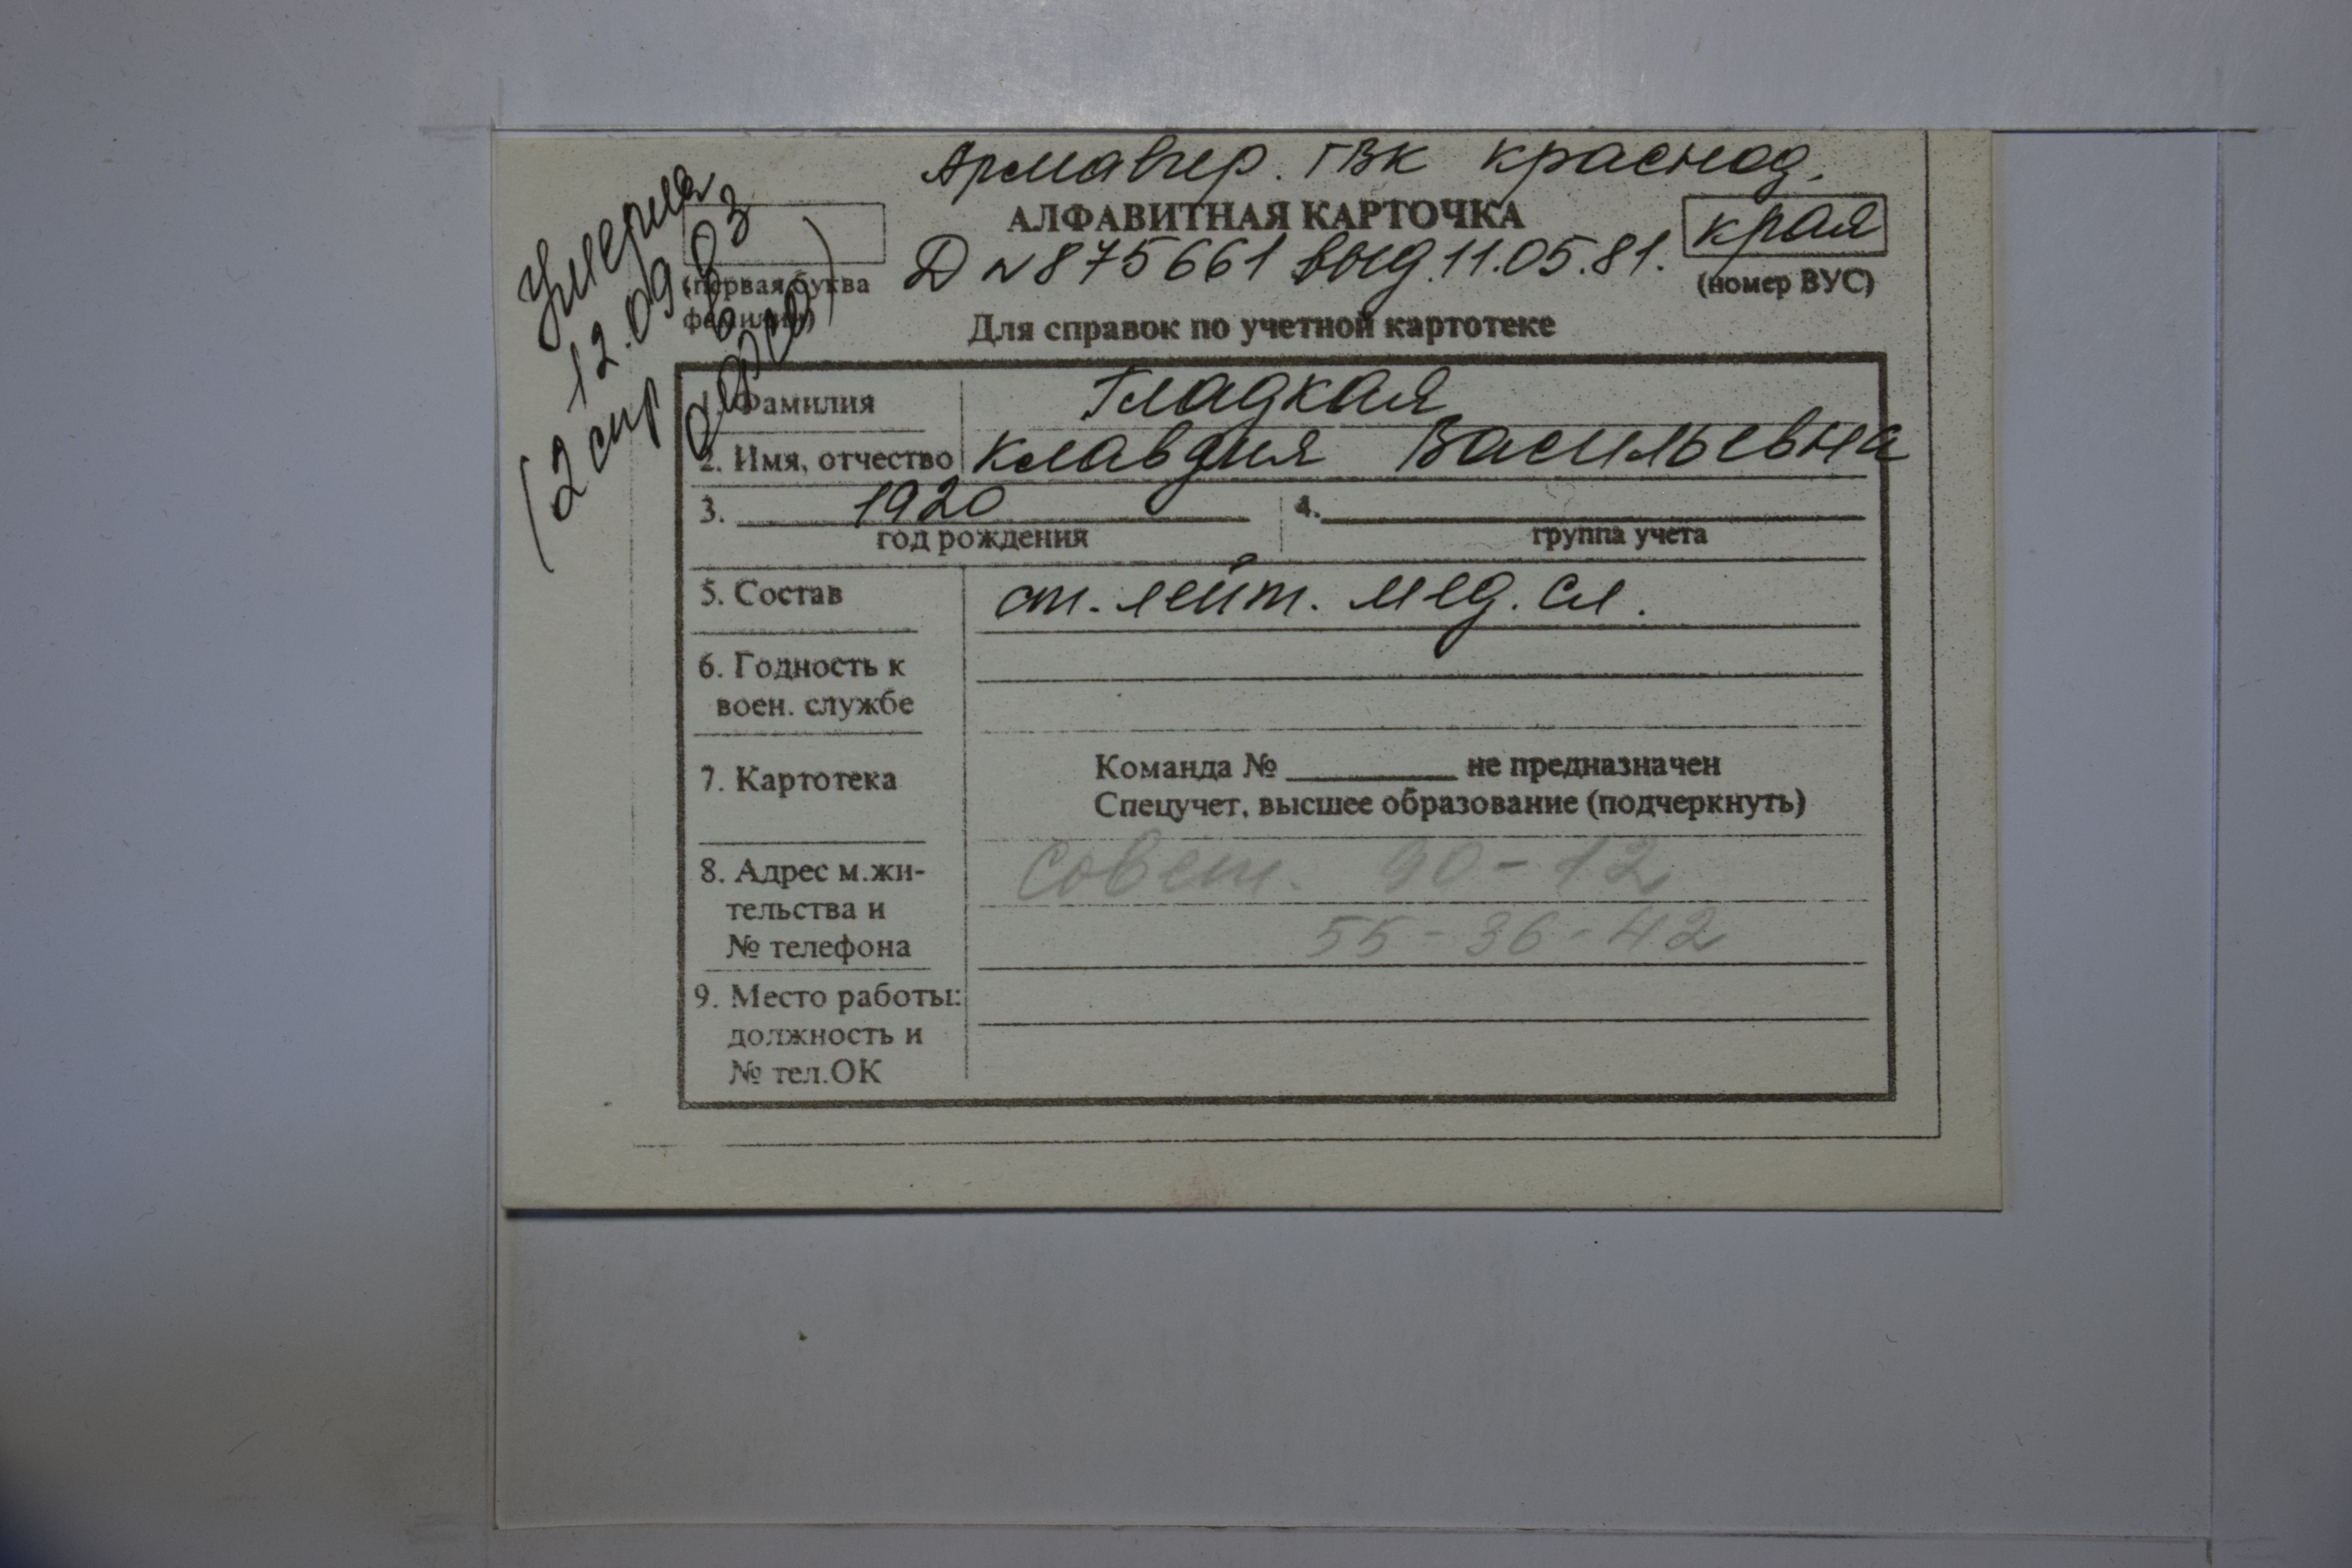 Армавир. ГВК краснод.
края
АЛФАВИТНАЯ КАРТОЧКА
Д № 875661 выд. 11.05.81.
(номер ВУС)
(первая буква
фамилии)
Для справок по учетной картотеке
Умерла
12.09.93
(2 стр
1. Фамилия Гладкая
2. Имя, отчество Клавдия Васильевна
3. 1920
год рождения
4.
группа учета
5. Состав ст. лейт. мед. сл.
6. Годность к
воен. службе
7. Картотека
Команда № не предназначен
Спецучет, высшее образование (подчеркнуть)
8. Адрес м.жи-
тельства и
№ телефона
Совет. 90-12
55-36-42
9. Место работы:
должность и
№ тел.ОК